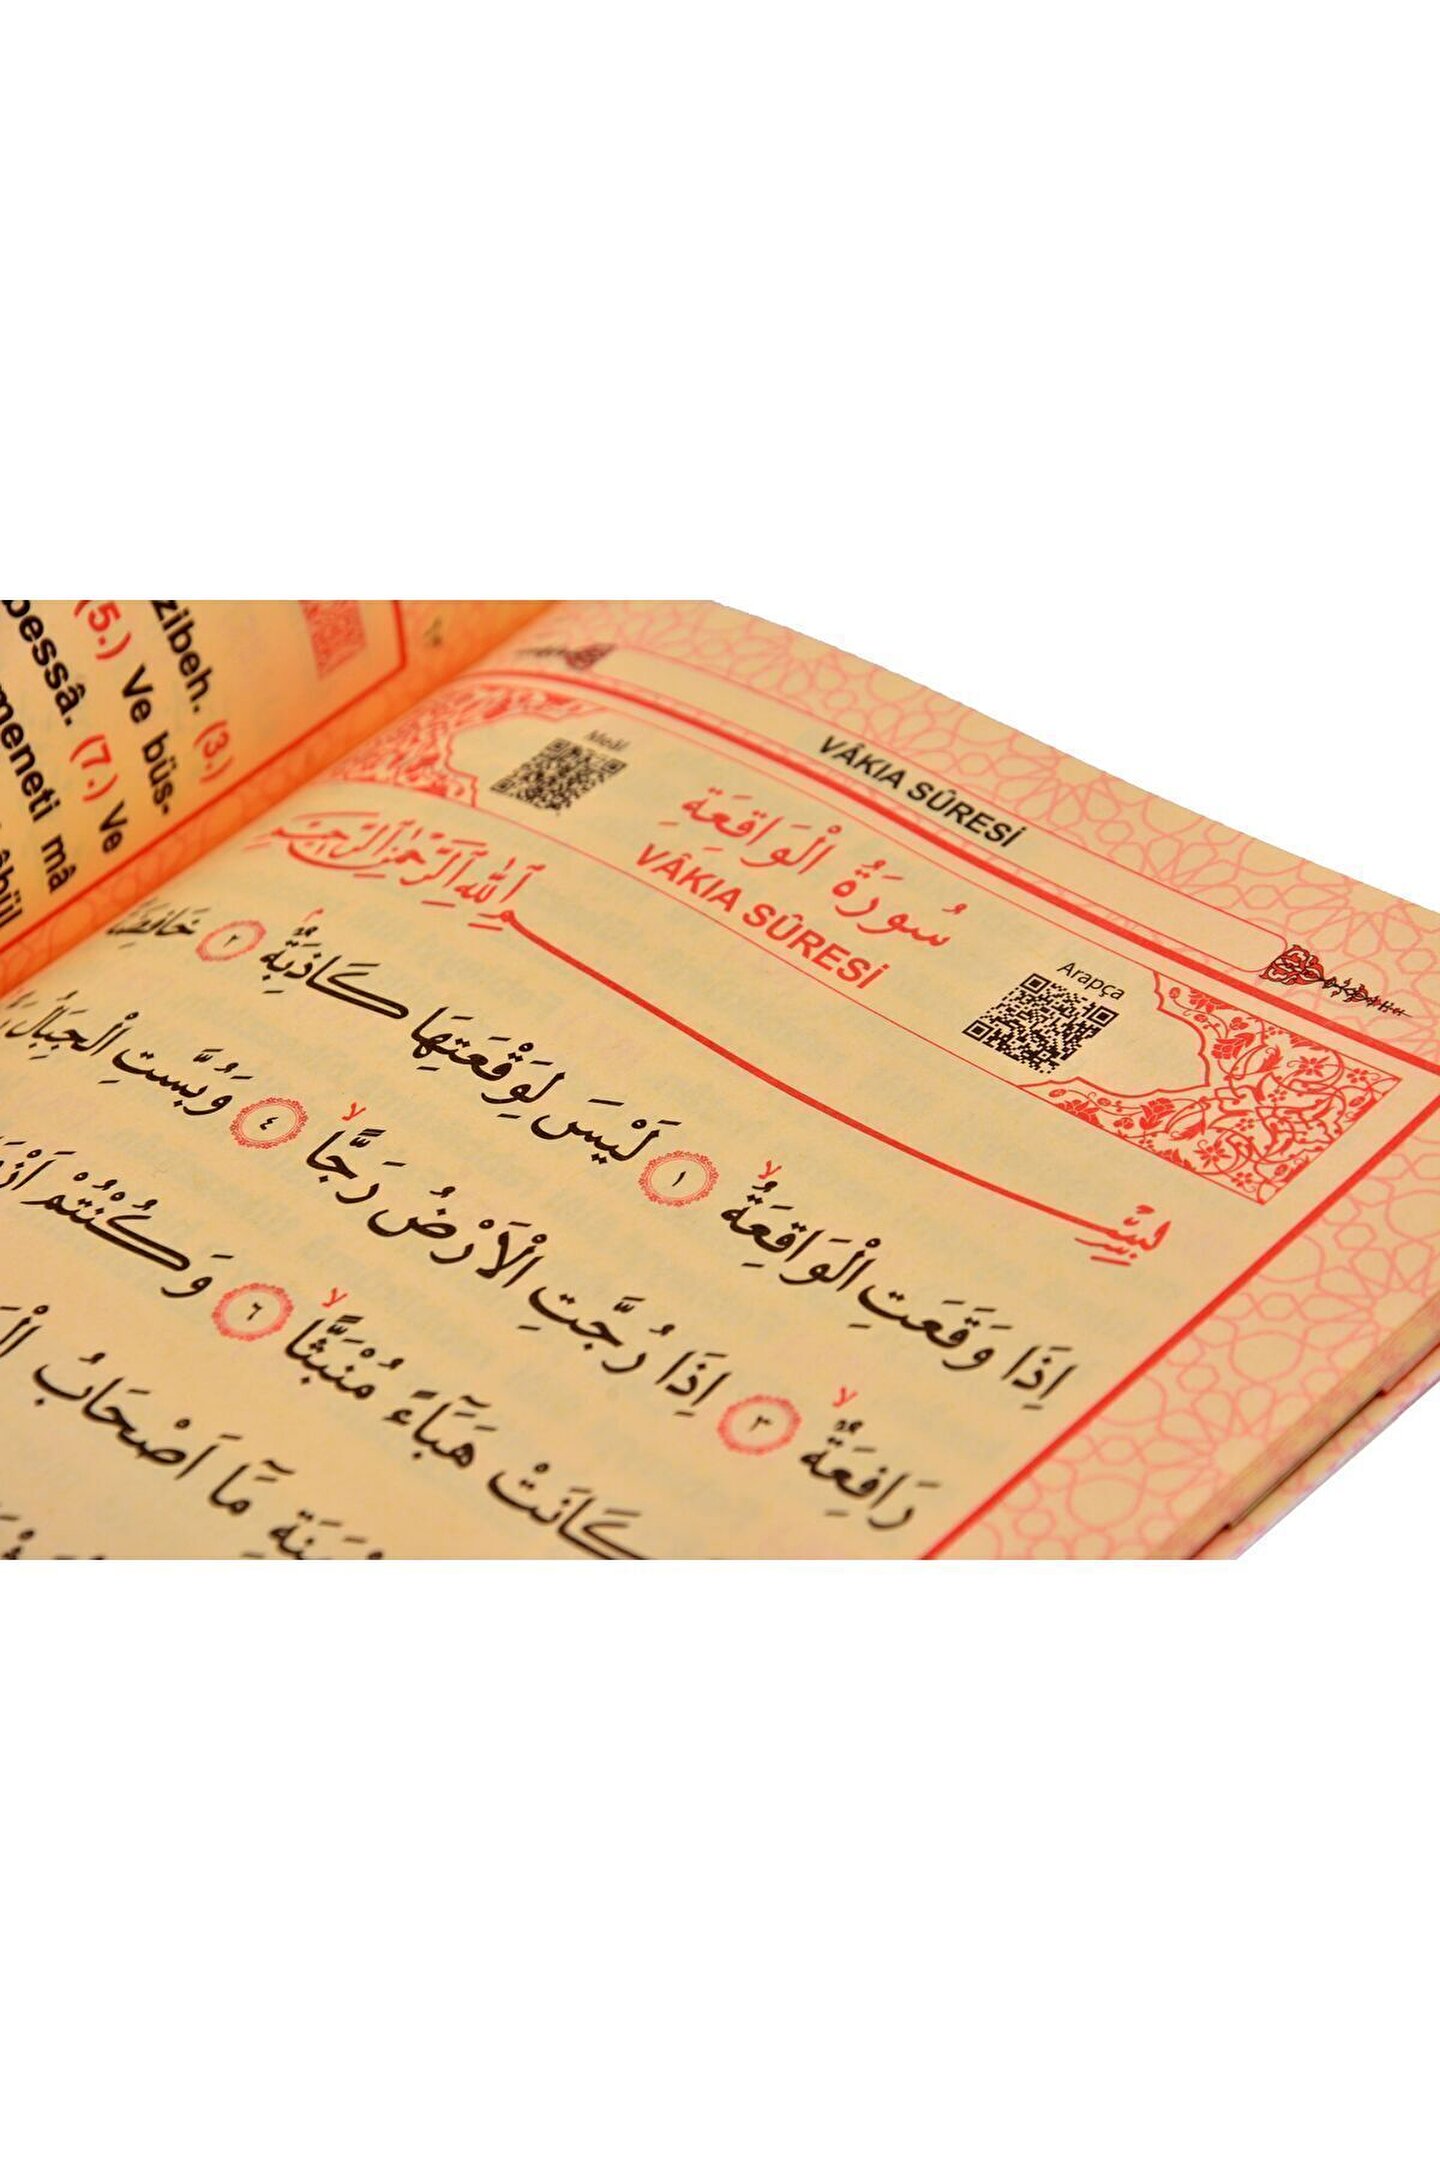 VÂKIA SÛRESİ
سُورَةُ الْوَاقِعَةِ
VÂKIA SÛRESİ
Meâl
Arapça
بِسْمِ اللّٰهِ الرَّحْمٰنِ الرَّحِيمِ
اِذَا وَقَعَتِ الْوَاقِعَةُۙ ﴿١﴾ لَيْسَ لِوَقْعَتِهَا كَاذِبَةٌۢ ﴿٢﴾
رَافِعَةٌۙ ﴿٣﴾ اِذَا رُجَّتِ الْاَرْضُ رَجًّاۙ ﴿٤﴾ وَبُسَّتِ الْجِبَالُ
كَانَتْ هَبَٓاءً مُنْبَثًّاۙ ﴿٦﴾ وَكُنْتُمْ
مَٓا اَصْحَابُ
zibeh. (3.)
(5.) Ve büs-
bessâ. (7.) Ve
meneti mâ